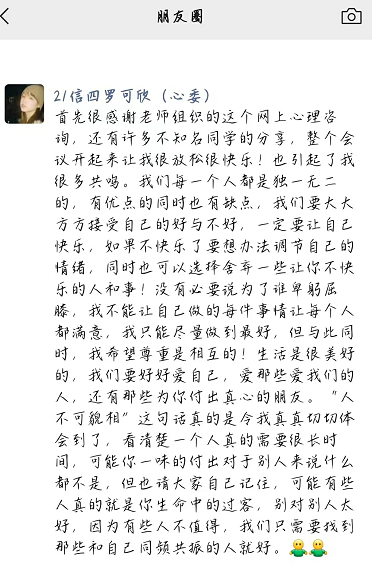 朋友圈
21信四罗可欣（心委）
首先很感谢老师组织的这个网上心理咨
询，还有许多不知名同学的分享，整个会
议开起来让我很放松很快乐！也引起了我
很多共鸣。我们每一个人都是独一无二
的，有优点的同时也有缺点，我们要大大
方方接受自己的好与不好，一定要让自己
快乐，如果不快乐了要想办法调节自己的
情绪，同时也可以选择舍弃一些让你不快
乐的人和事！没有必要说为了谁卑躬屈
膝，我不能让自己做的每件事情让每个人
都满意，我只能尽量做到最好，但与此同
时，我希望尊重是相互的！生活是很美好
的，我们要好好爱自己，爱那些爱我们的
人，还有那些为你付出真心的朋友。“人
不可貌相”这句话真的是令我真真切切体
会到了，看清楚一个人真的需要很长时
间，可能你一味的付出对于别人来说什么
都不是，但也请大家自己记住，可能有些
人真的就是你生命中的过客，别对别人太
好，因为有些人不值得，我们只需要找到
那些和自己同频共振的人就好。